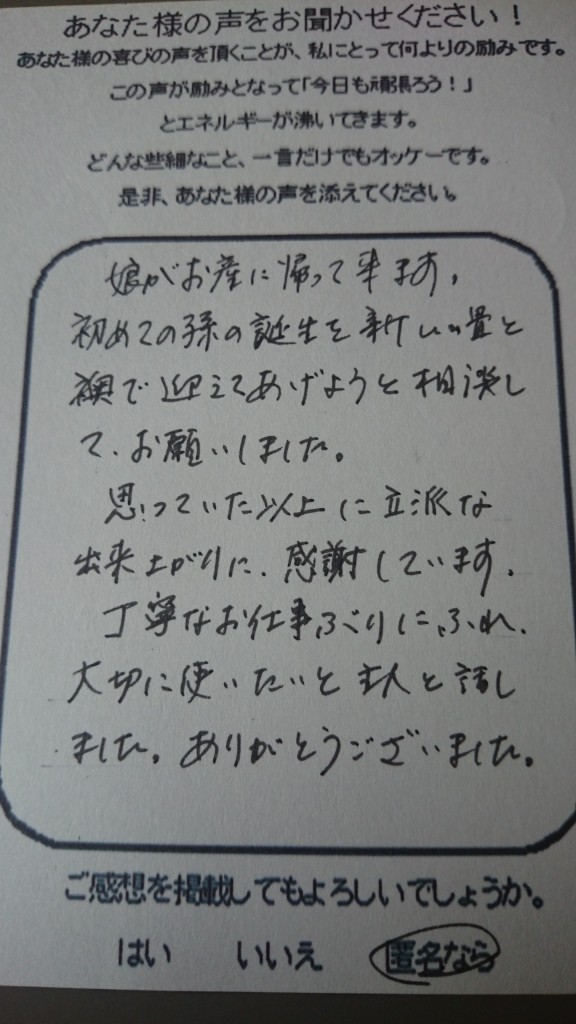 あなた様の声をお聞かせください!
あなた様の喜びの声を頂くことが、私にとって何よりの励みです。
この声が励みとなって「今日も頑張ろう!」
とエネルギーが沸いてきます。
どんな些細なこと、一言だけでもオッケーです。
是非、あなた様の声を添えてください。
娘がお産に帰って来ます。
初めての孫の誕生を新しい畳と
襖で迎えてあげようと相談し
て、お願いしました。
思っていた以上に立派な
出来上がりに、感謝しています。
丁寧なお仕事ぶりにふれ、
大切に使いたいと主人と話し
ました。ありがとうございました。
ご感想を掲載してもよろしいでしょうか。
はい いいえ 匿名なら